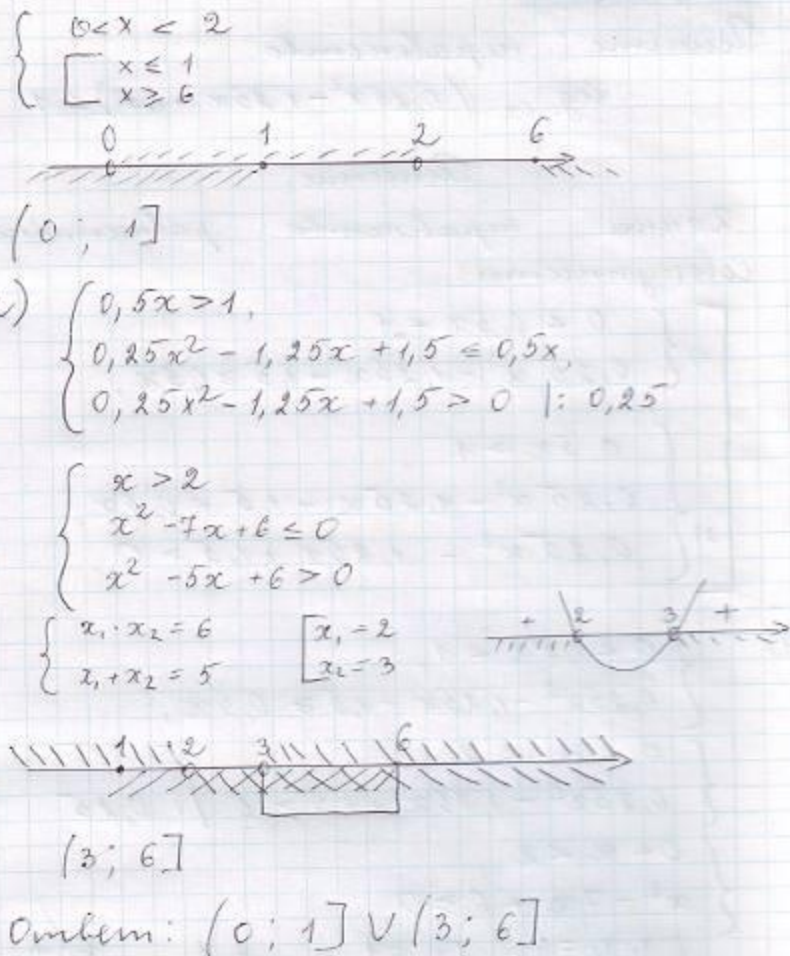 { 0 < x < 2
[ x ≤ 1
x ≥ 6
0 1 2 6
(0; 1]
) { 0,5x > 1,
0,25x² - 1,25x + 1,5 ≤ 0,5x,
0,25x² - 1,25x + 1,5 > 0 |: 0,25
{ x > 2
x² - 7x + 6 ≤ 0
x² - 5x + 6 > 0
{ x₁ · x₂ = 6 [ x₁ = 2
x₁ + x₂ = 5 x₂ = 3
+ 2 3 +
1 2 3 6
(3; 6]
Ответ: (0; 1] ∪ (3; 6].